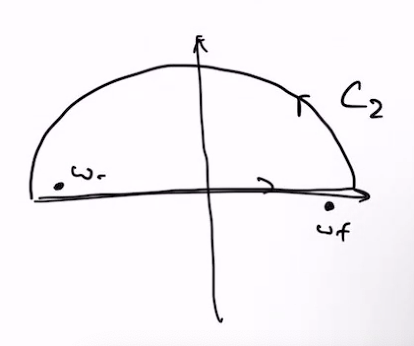 C₂
ω-
ωf